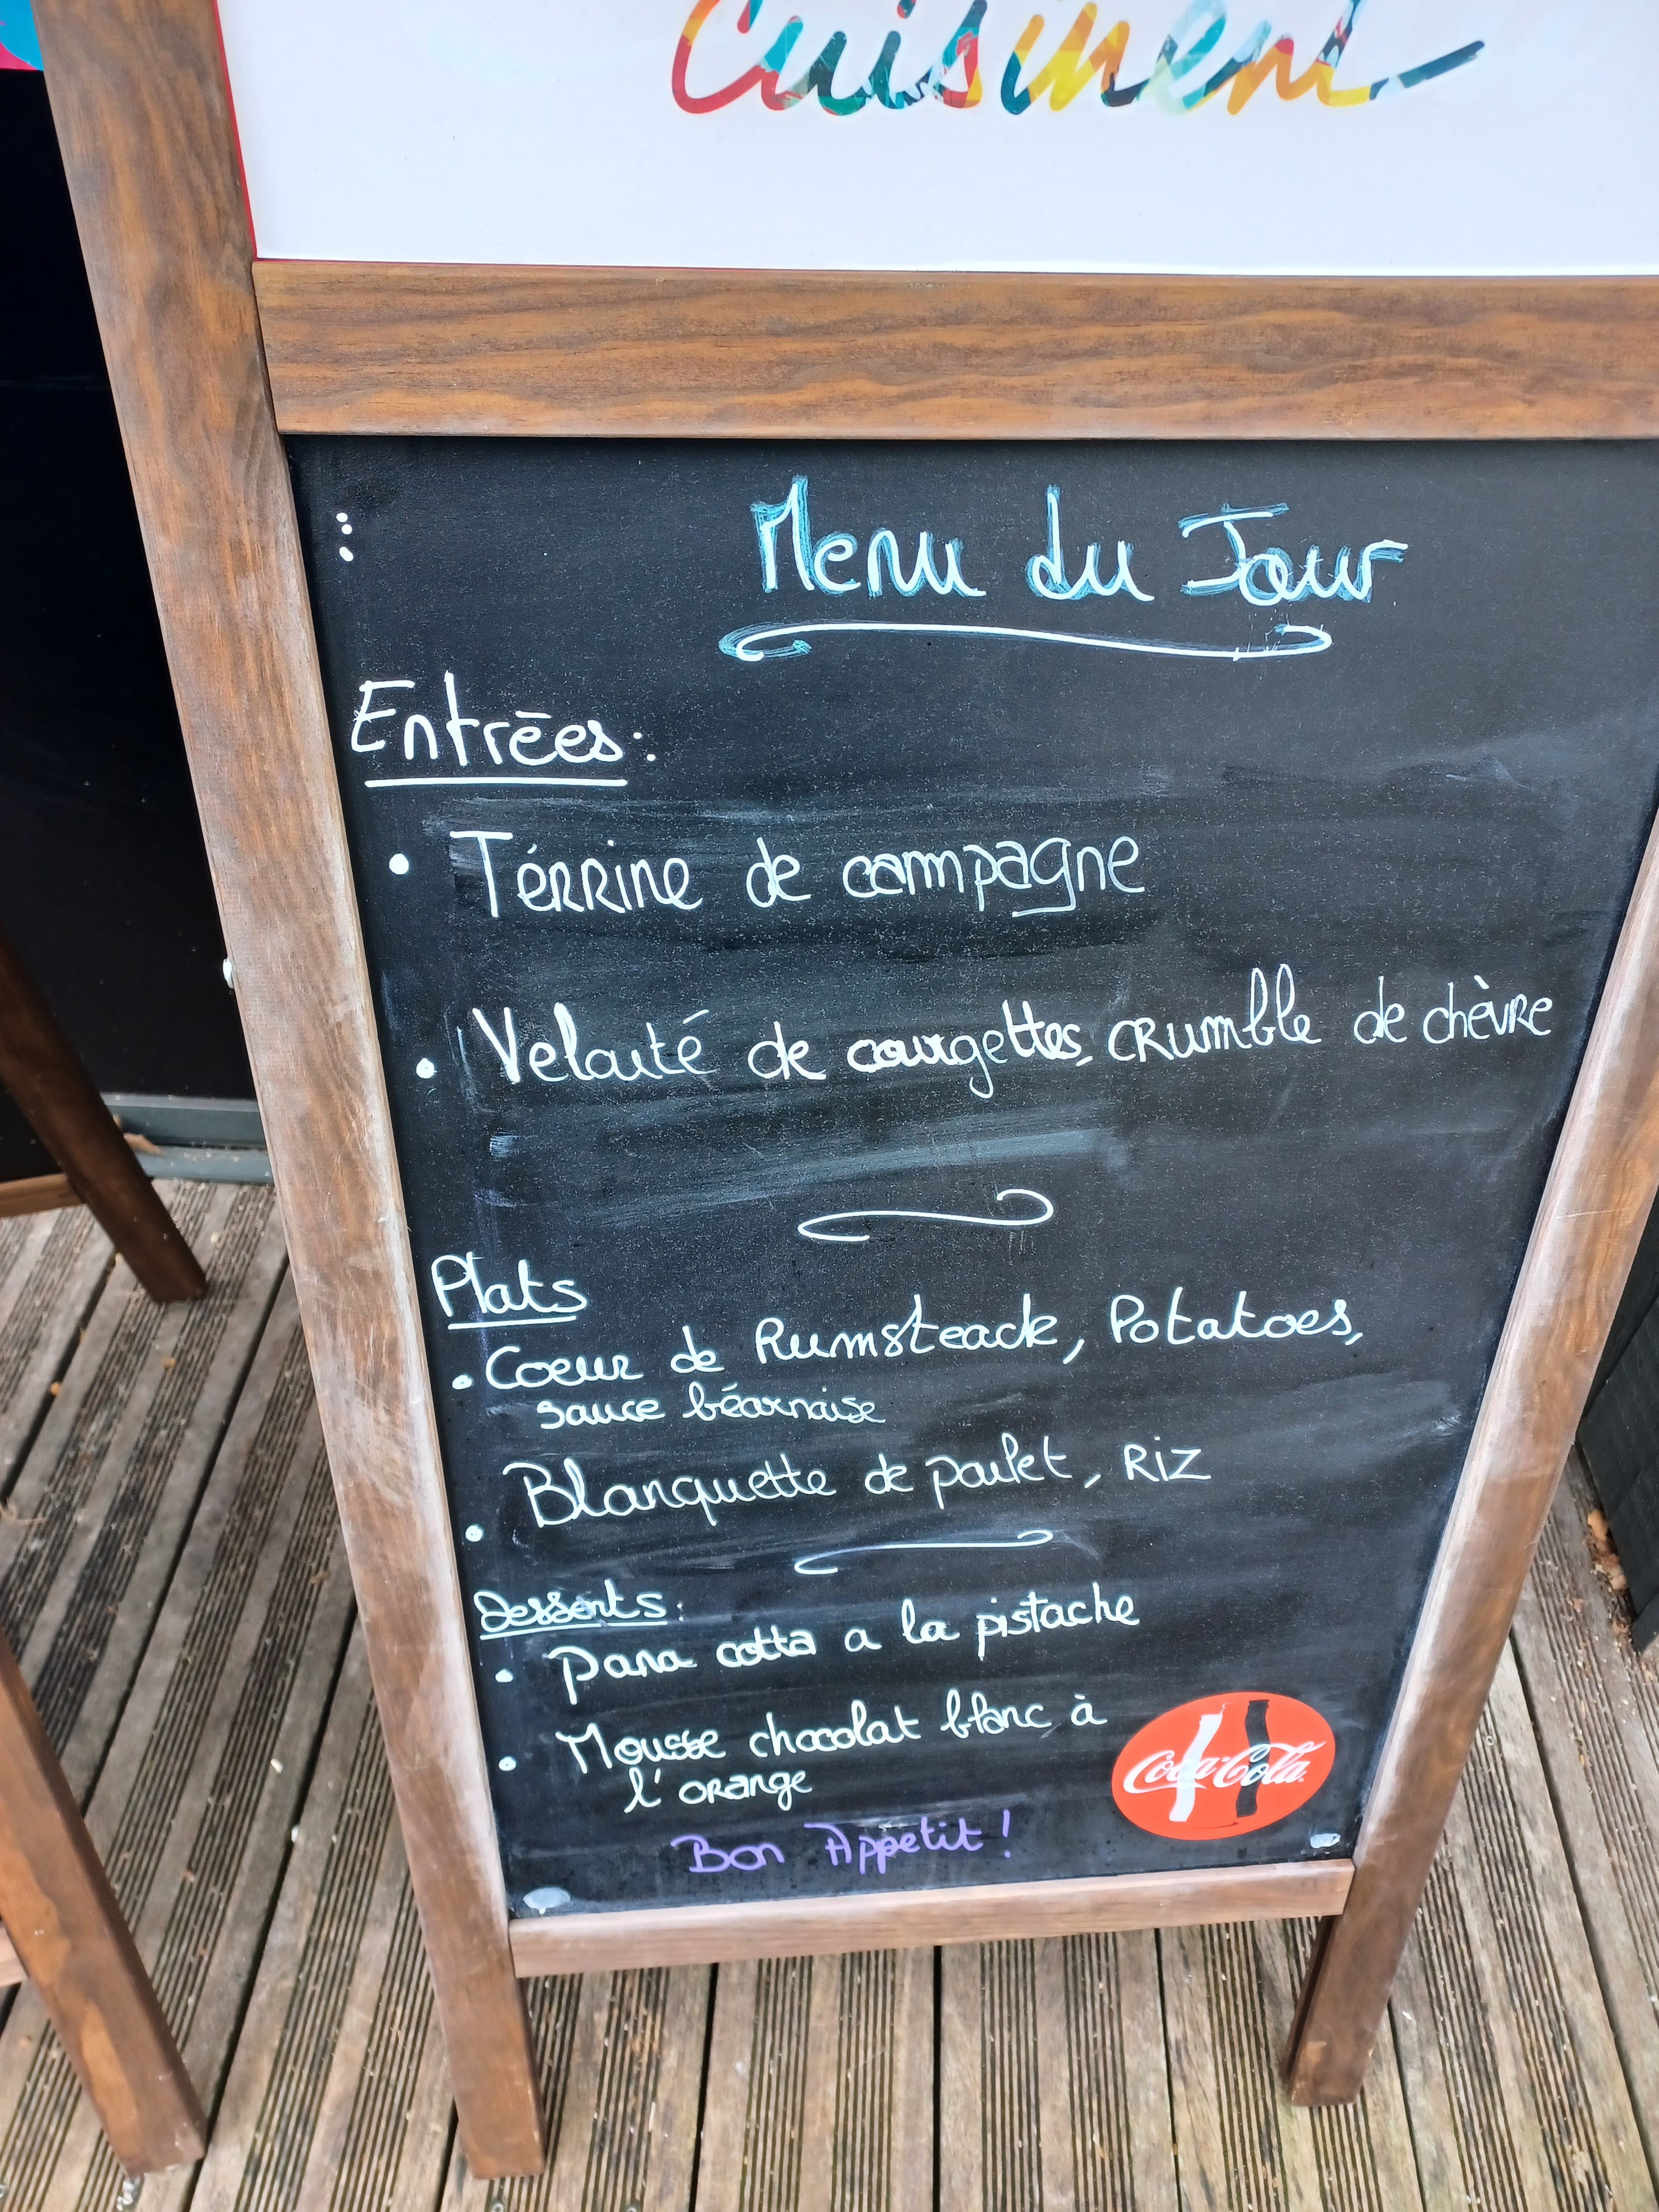 Cuisinent
Menu du Jour
Entrées:
• Térrine de campagne
• Velouté de courgettes, crumble de chèvre
Plats
• Coeur de Rumsteack, Potatoes,
sauce béarnaise
• Blanquette de poulet, Riz
Desserts:
• Pana cotta a la pistache
• Mousse chocolat blanc à
l'orange
Coca-Cola
Bon Appetit!